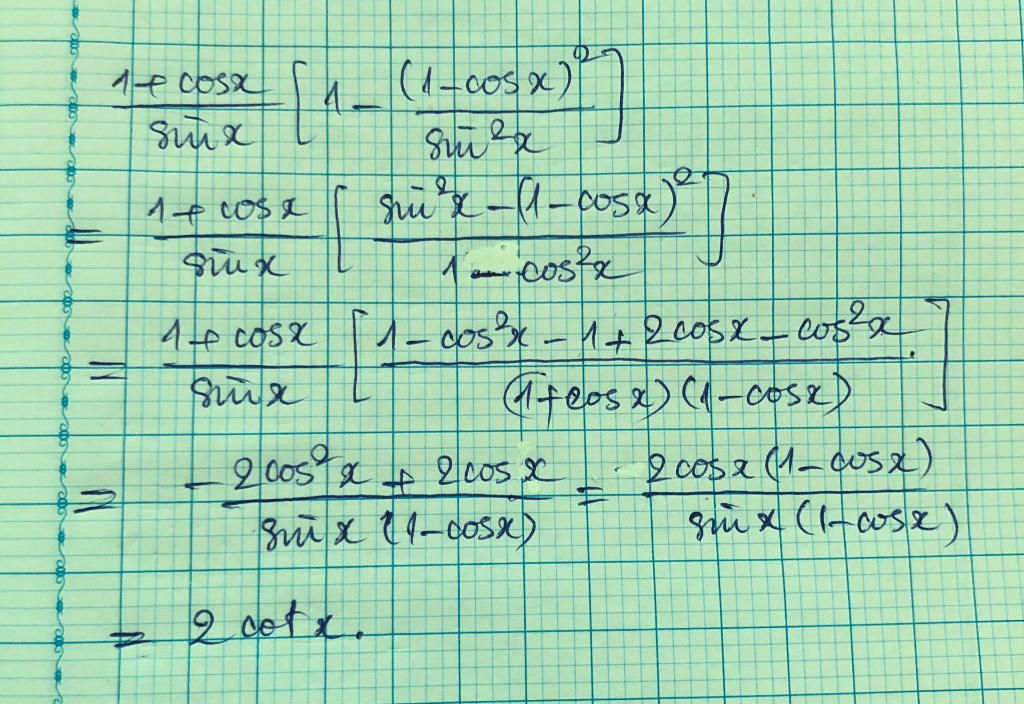 (1 + cosx)/(sin x) [1 - (1 - cosx)²/(sin²x)]
= (1 + cosx)/(sin x) [(sin²x - (1 - cosx)²)/(1 - cos²x)]
= (1 + cosx)/(sin x) [(1 - cos²x - 1 + 2cosx - cos²x)/((1 + cosx)(1 - cosx))]
= (-2cos²x + 2cosx)/(sin x (1 - cosx)) = (2cosx(1 - cosx))/(sin x (1 - cosx))
= 2 cot x.